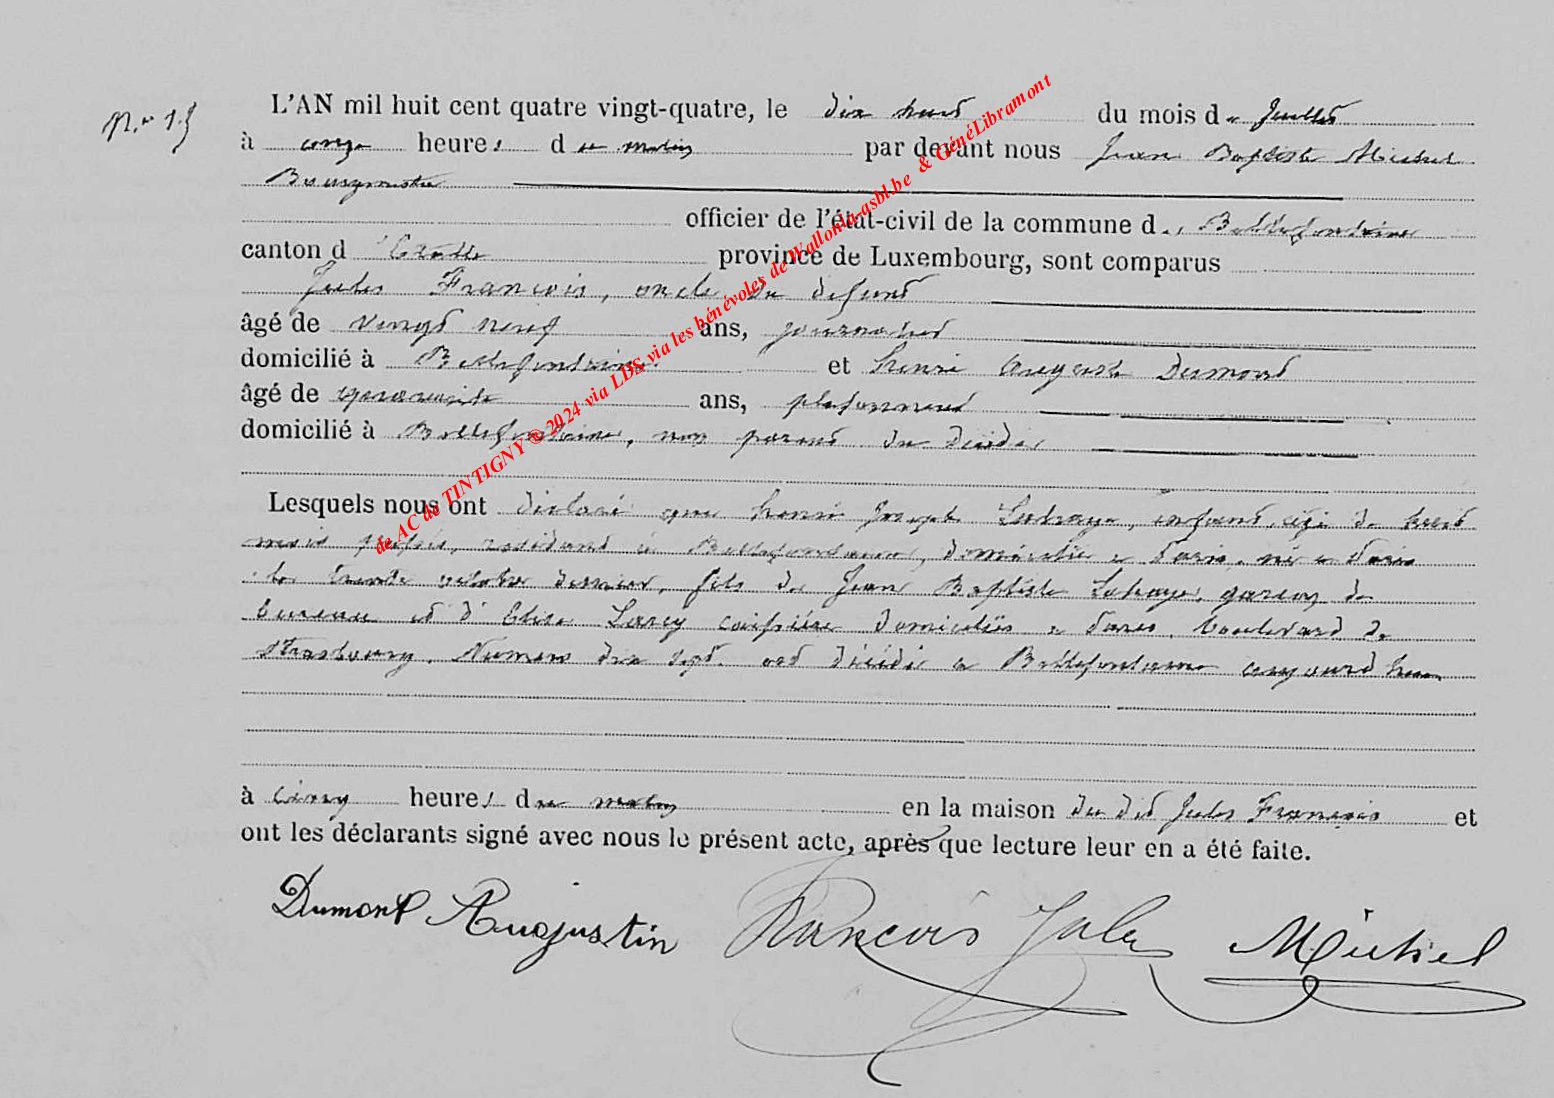 N.o 15
L'AN mil huit cent quatre vingt-quatre, le dix huit du mois de Juillet
à onze heures du matin par devant nous Jean Baptiste Michel
Bourgmestre
officier de l'état-civil de la commune de Bellefontaine
canton d'Etalle province de Luxembourg, sont comparus
Jules François, oncle du défunt
âgé de vingt neuf ans, journalier
domicilié à Bellefontaine et Henri Auguste Dumont
âgé de quarante ans, plafonneur
domicilié à Bellefontaine, non parent du décédé
Lesquels nous ont déclaré que Henri Joseph Lahaye, enfant, âgé de huit
mois passés, résidant à Bellefontaine, domicilié à Paris, né à Paris
le trente octobre dernier, fils de Jean Baptiste Lahaye, garçon de
bureau et d'Elise caissière domiciliés à Paris, boulevard de
Strasbourg, Numero dix sept, est décédé à Bellefontaine aujourd'hui
à cinq heures du matin en la maison du dit Jules François et
ont les déclarants signé avec nous le présent acte, après que lecture leur en a été faite.
Dumont Augustin François Jules Michel
de AC de TINTIGNY ©2024 via LDS, via les bénévoles de Wallonia-asbl.be & GénéLibramont